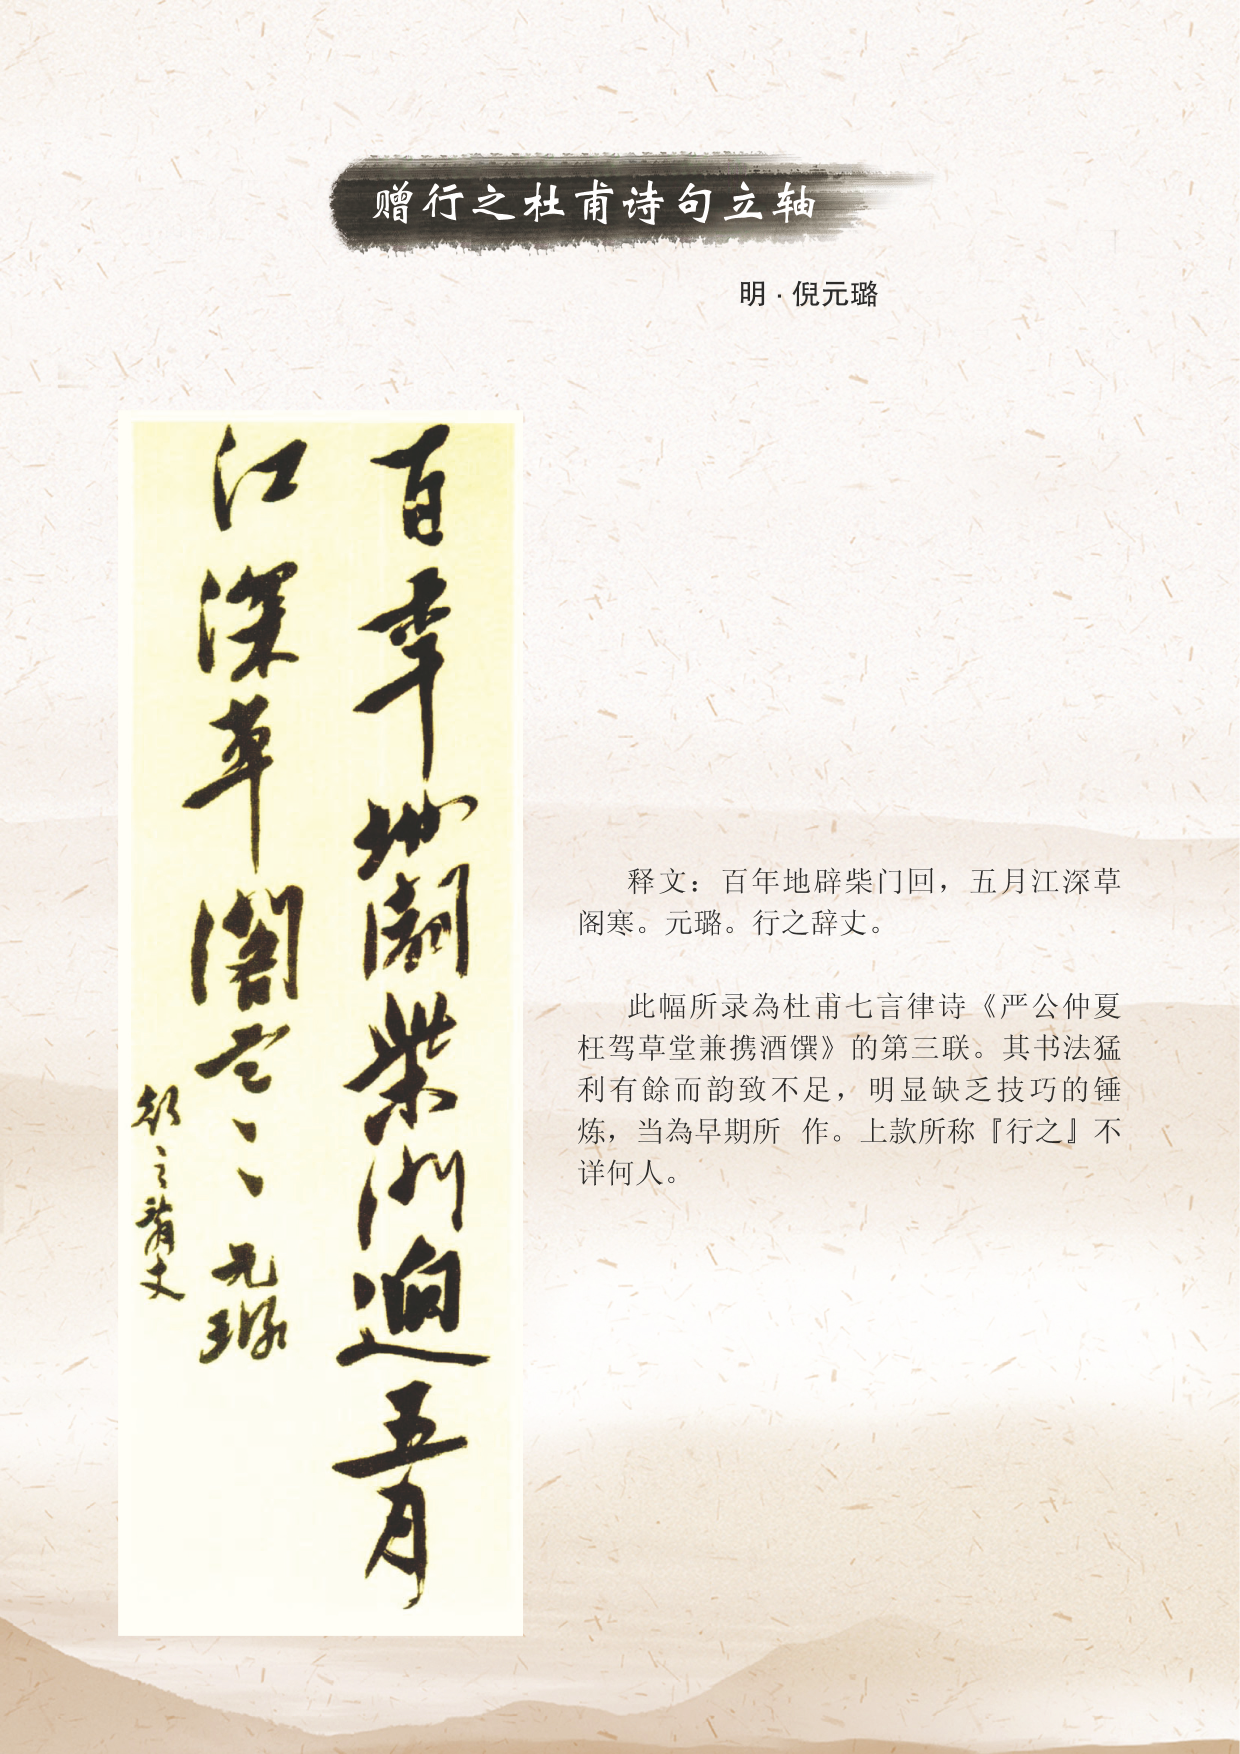 赠行之杜甫诗句立轴
明·倪元璐
百年地闢柴門迥五月
江深草閣寒元璐
行之辞丈
释文：百年地辟柴门回，五月江深草
阁寒。元璐。行之辞丈。
此幅所录為杜甫七言律诗《严公仲夏
枉驾草堂兼携酒馔》的第三联。其书法猛
利有餘而韵致不足，明显缺乏技巧的锤
炼，当為早期所 作。上款所称『行之』不
详何人。